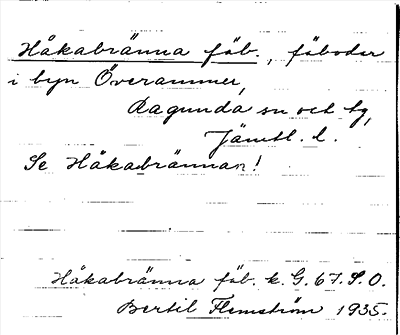 Håkabränna fäb., fäbodar
i byn Överammer,
Ragunda sn och tg,
Jämtl. l.
Se Håkabrännan!
Håkabränna fäb. k. G. 67. S. O.
Bertil Flemström 1935.